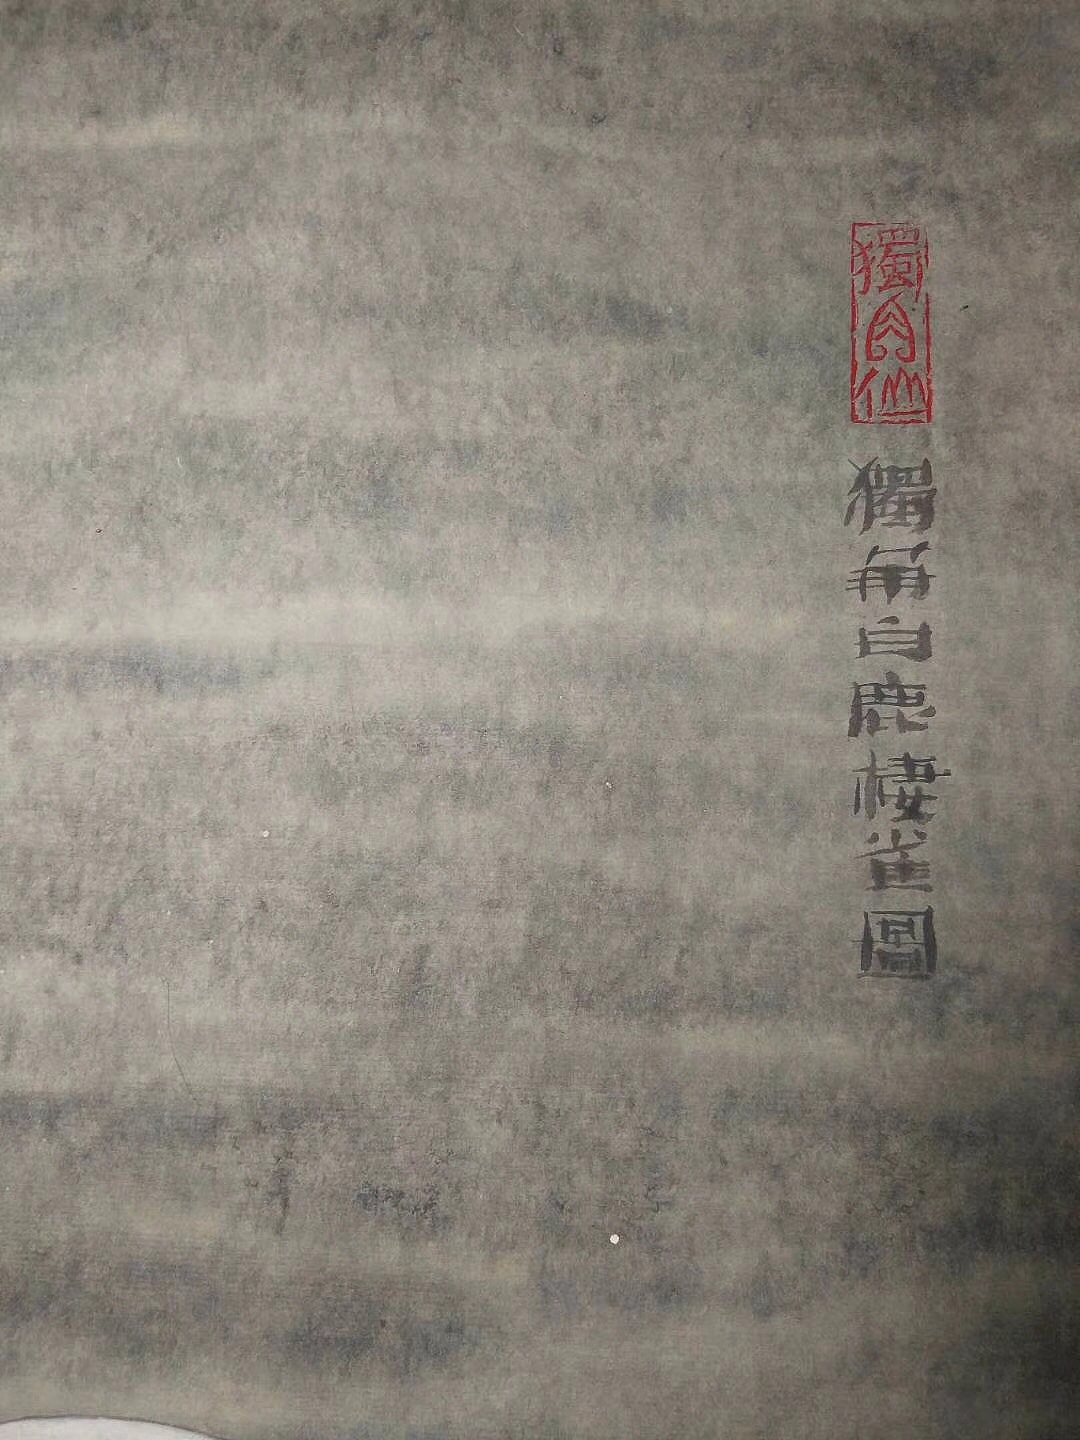 獨角仙
獨角白鹿棲雀圖